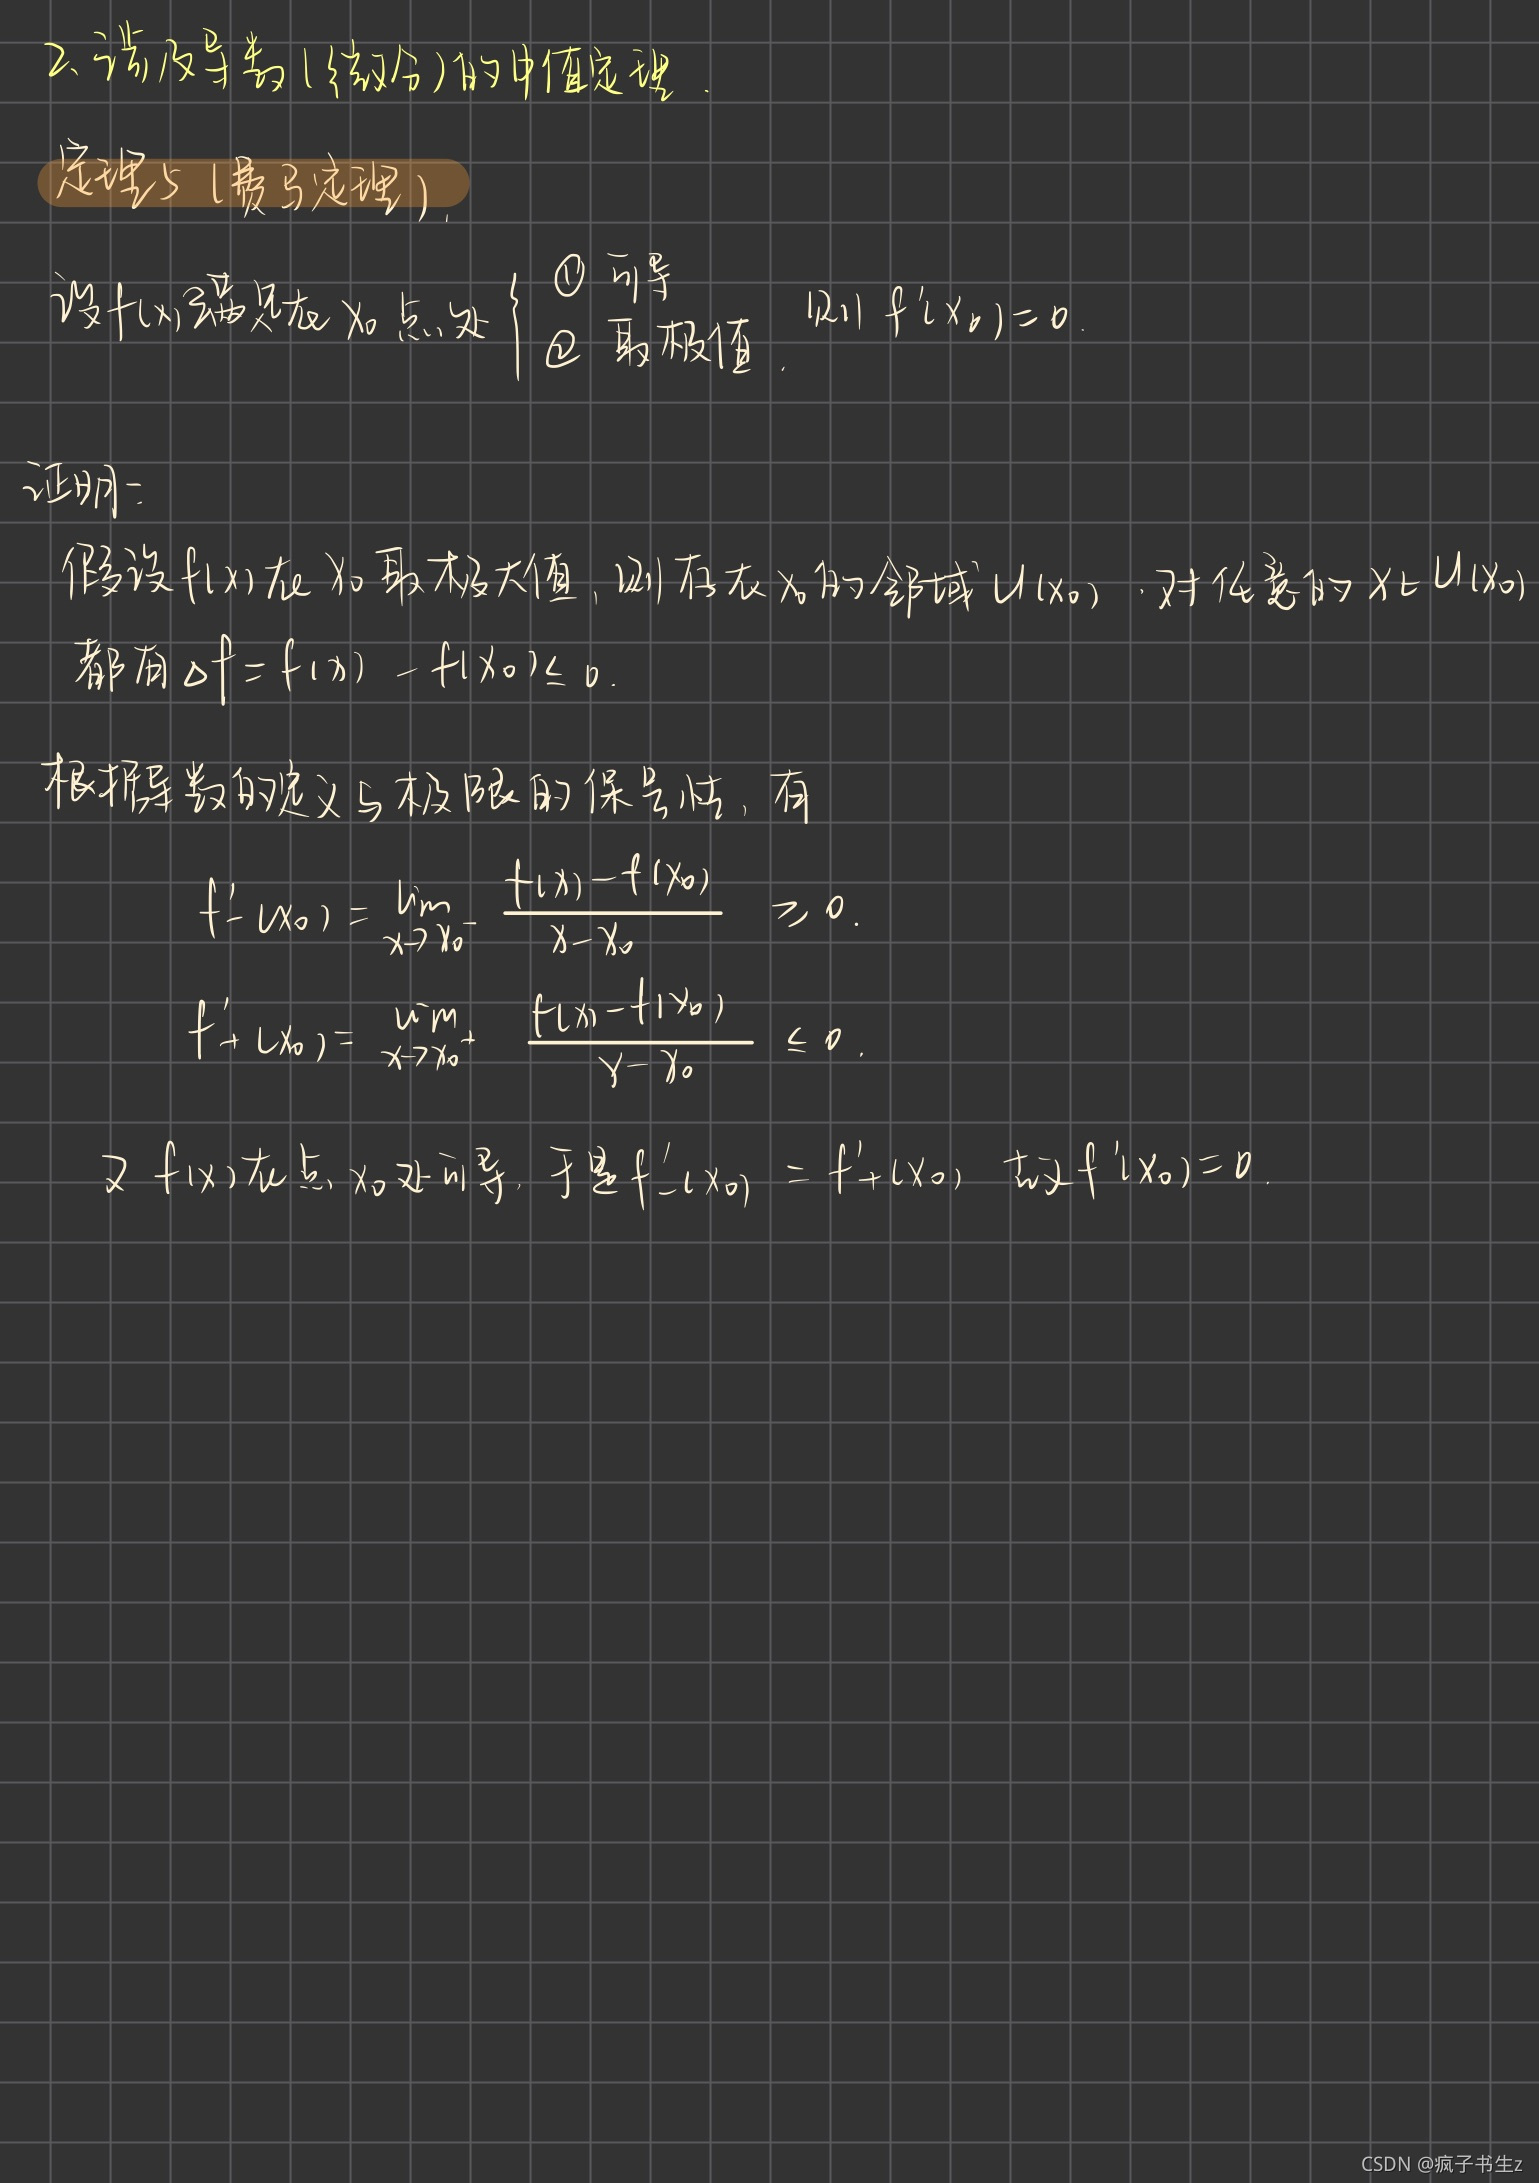 2、涉及导数(微分)的中值定理.
定理5(费马定理).
设f(x)满足在x₀点处{ ① 可导 ② 取极值. 则 f'(x₀)=0.
证明:
假设f(x)在x₀取极大值,则存在x₀的邻域U(x₀).对任意的x∈U(x₀)
都有Δf=f(x)-f(x₀)≤0.
根据导数的定义与极限的保号性,有
f'₋(x₀) = lim x→x₀⁻ (f(x)-f(x₀))/(x-x₀) ≥0.
f'₊(x₀) = lim x→x₀⁺ (f(x)-f(x₀))/(x-x₀) ≤0.
又f(x)在点x₀处可导,于是f'₋(x₀) = f'₊(x₀) 故f'(x₀)=0.
CSDN @疯子书生z